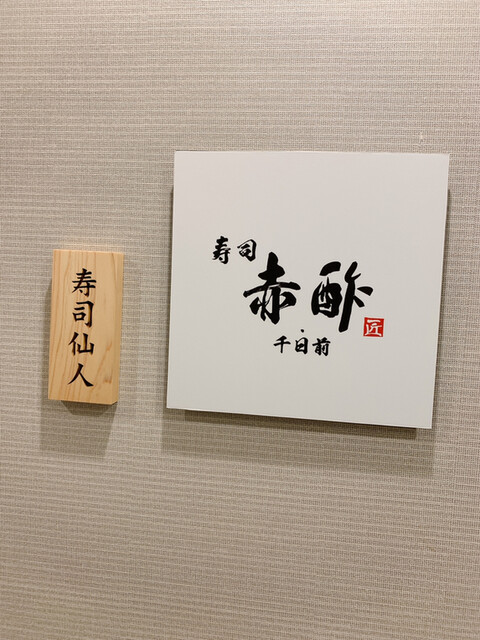 寿司仙人
寿司
赤酢
千日前
匠